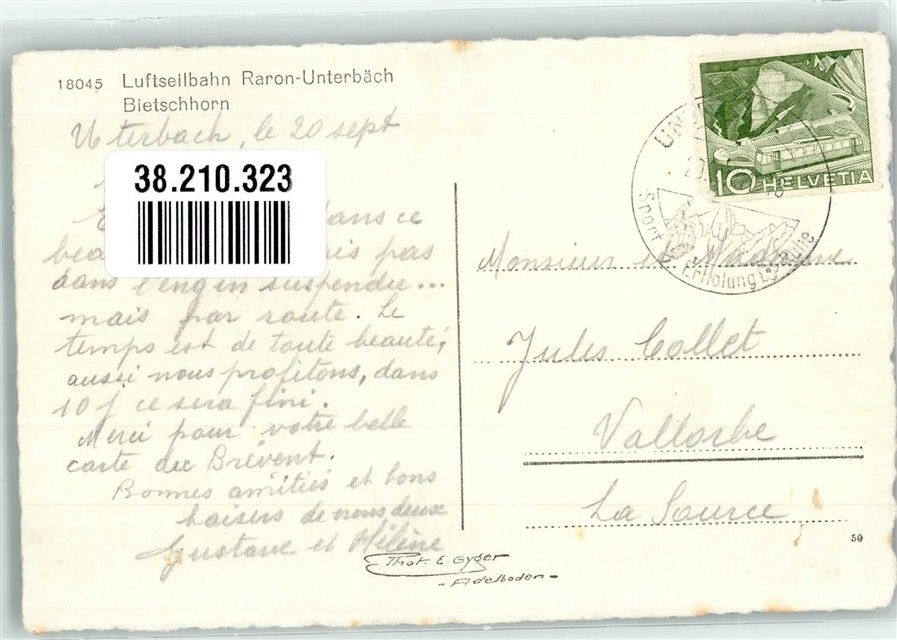 18045 Luftseilbahn Raron-Unterbäch
Bietschhorn
Uterbach, le 20 sept
38.210.323
dans ce
pas
dans l'engin suspendu...
mais par route. Le
temps est de toute beauté,
aussi nous profitons, dans
10 j ce sera fini.
Merci pour votre belle
carte du Brévent.
Bonnes amitiés et bons
baisers de nous deux
Gustave et Hélène
Phot. E. Gyger
- Adelboden -
10 HELVETIA
UN
20.
Sport
Erholung
Monsieur et Madame
Jules Collet
Vallorbe
La Source
50